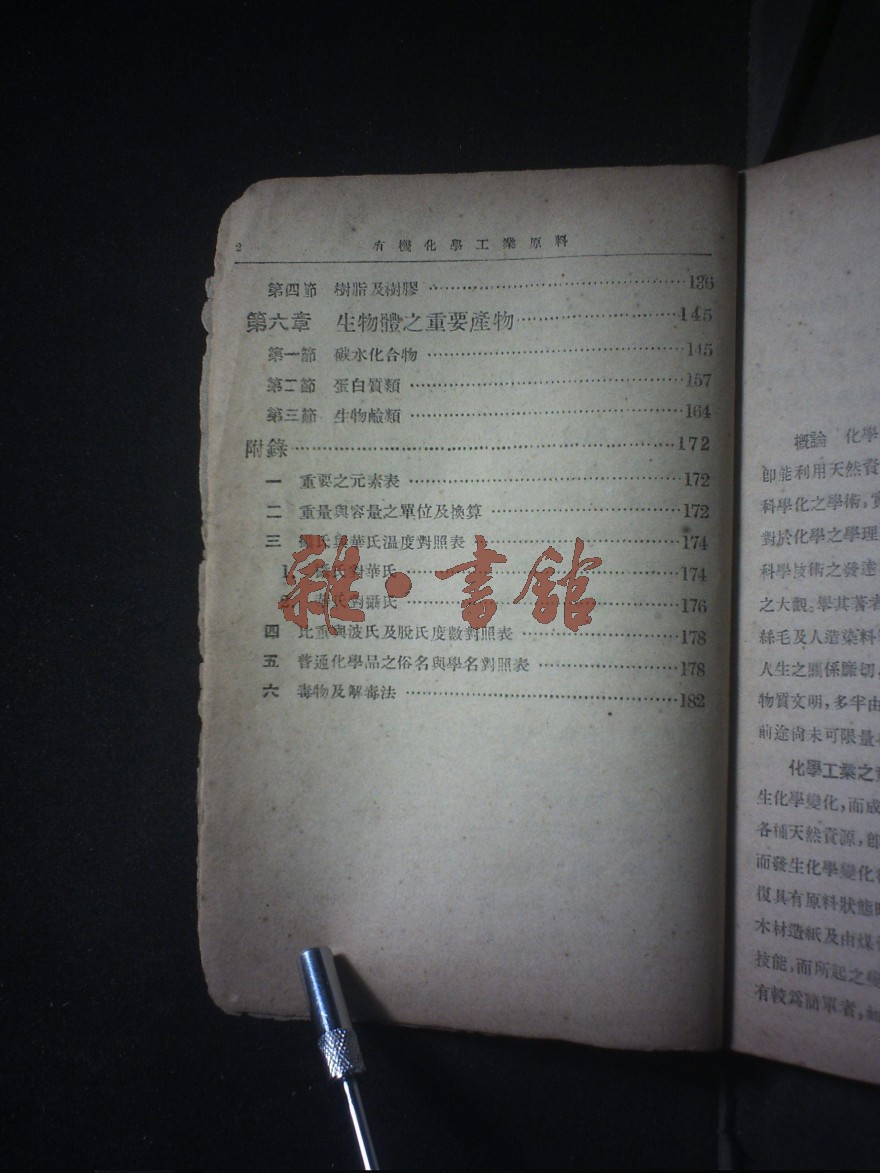 2 有機化學工業原料
第四節 樹脂及樹膠 136
第六章 生物體之重要產物 145
第一節 碳水化合物 145
第二節 蛋白質類 157
第三節 生物鹼類 164
附錄 172
一 重要之元素表 172
二 重量與容量之單位及換算 172
三 攝氏與華氏溫度對照表 174
1. 攝氏對華氏 174
2. 華氏對攝氏 176
四 比重與波氏及脫氏度數對照表 178
五 普通化學品之俗名與學名對照表 178
六 毒物及解毒法 182
雜·書館
概論 化學
即能利用天然資
科學化之學術,實
對於化學之學理
科學技術之發達
之大觀。舉其著者
絲毛及人造染料
人生之關係綦切,
物質文明,多半由
前途尚未可限量
化學工業之
生化學變化,而成
各種天然資源,即
而發生化學變化
復具有原料狀態
木材造紙及由煤
技能,而所起之變
有較爲簡單者,如